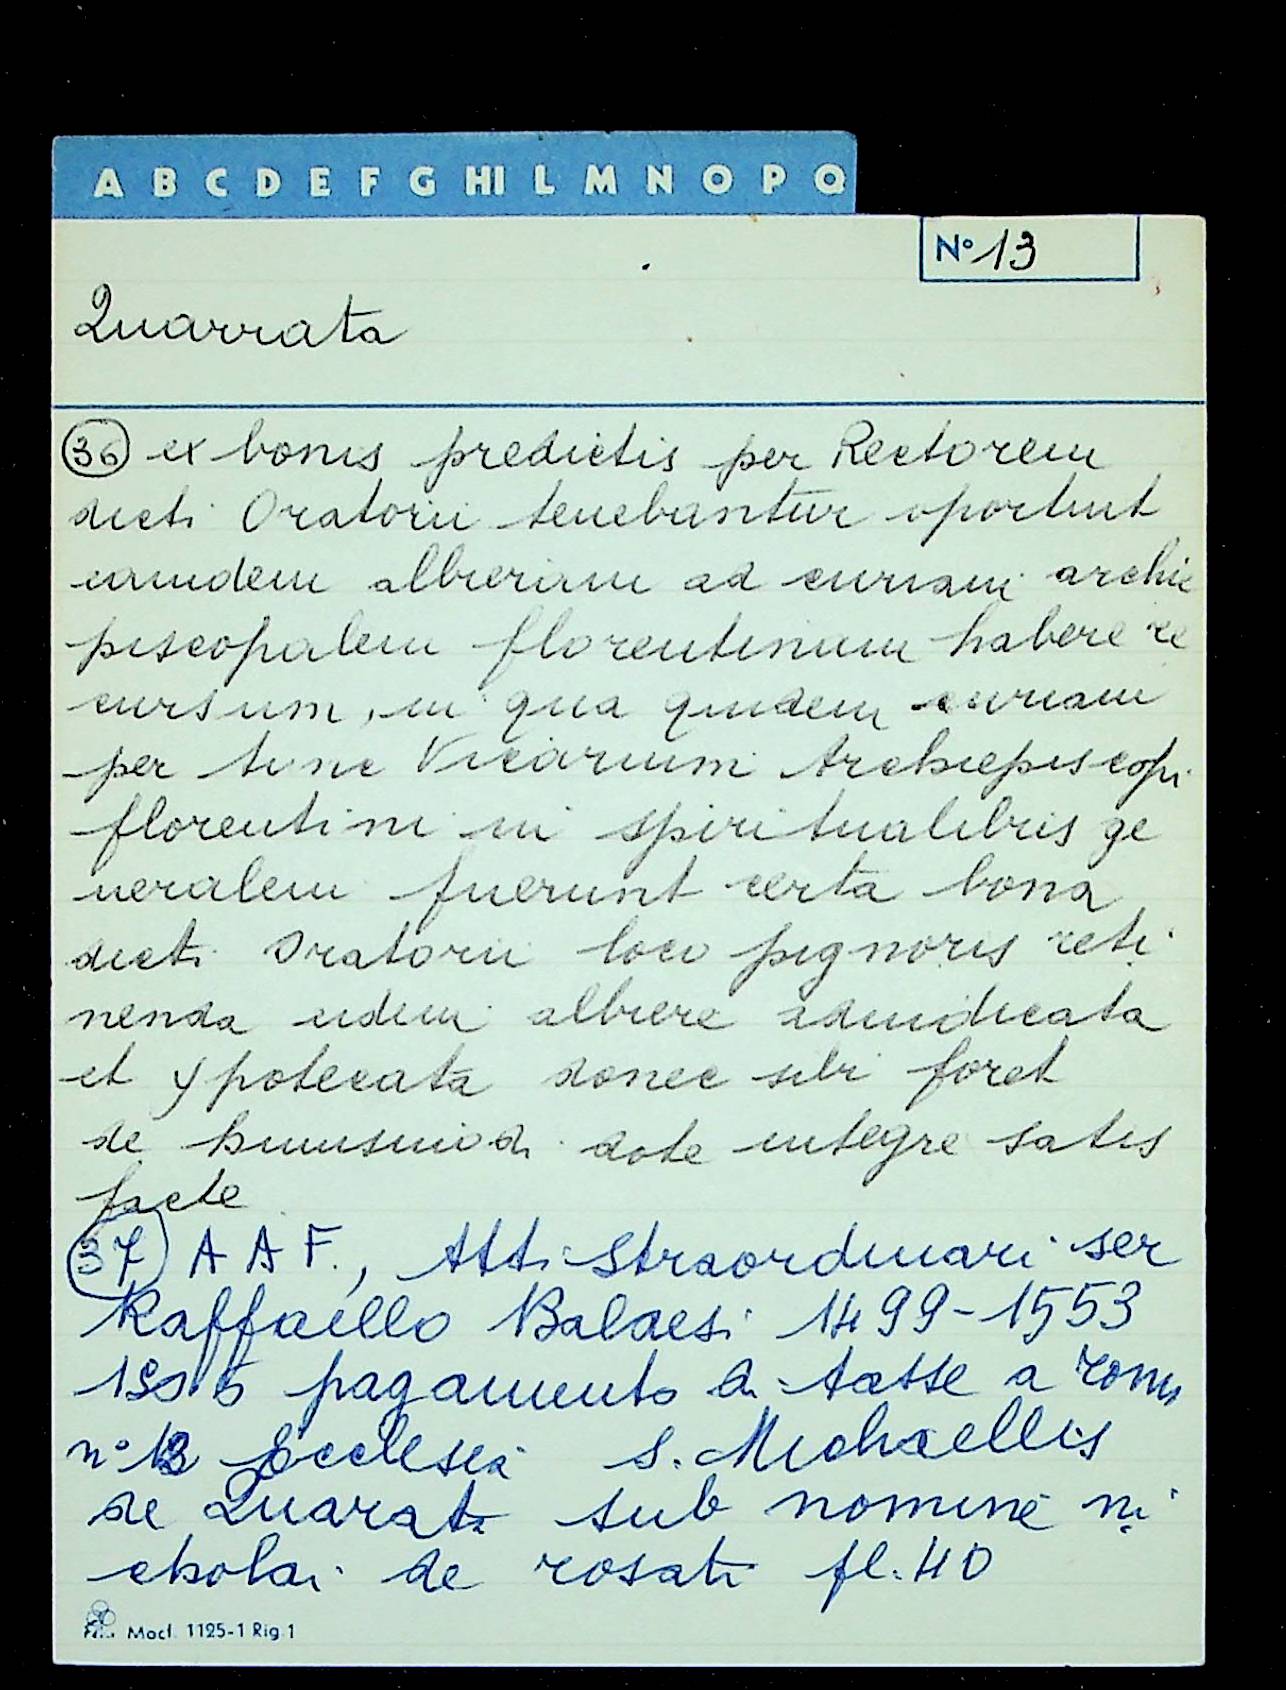 A B C D E F G HI L M N O P Q
N° 13
Quarrata
36 ex bonis predictis per Rectorem
dicti Oratorii tenebantur oportuit
eamdem albieram ad curiam archie
piscopalem florentinam habere re
cursum, in qua quidem curiam
per tunc Vicarium Archiepiscopi
florentini in spiritualibus ge
neralem fuerunt certa bona
dicti Oratorii loco pignoris reti
nenda eidem albiere adiudicata
et ypotecata donec sibi foret
de huiusmodi dote integre satis
facte
37 A A F., Atti straordinari ser
Raffaello Balaesi 1499-1553
pagamento di tasse a roma
n° Ecclesia S. Michaellis
de Quarata sub nomine ni
cholai de rosati fl. 40
Mod. 1125-1 Rig 1